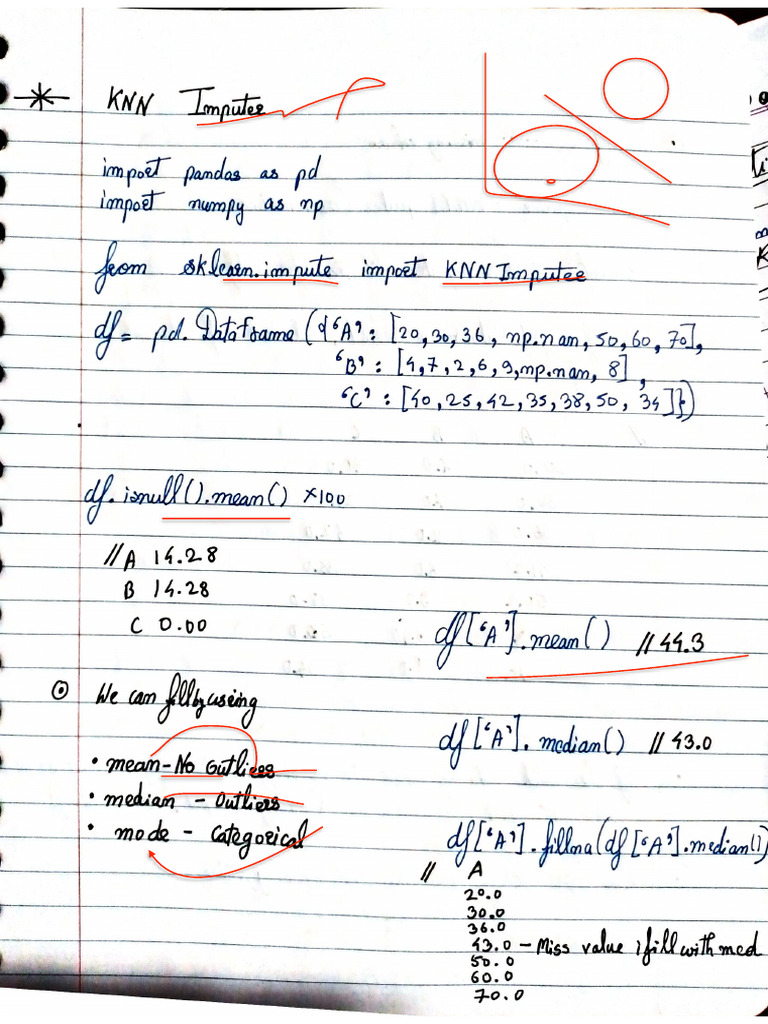 KNN Imputer
import pandas as pd
import numpy as np
from sklearn.impute import KNN Imputer
df = pd. DataFrame ({'A' : [20, 30, 36, np.nan, 50, 60, 70],
'B' : [4, 7, 2, 6, 9, np.nan, 8],
'C' : [40, 25, 42, 35, 38, 50, 34]})
df. isnull().mean() ×100
// A 14.28
B 14.28
C 0.00
df['A'].mean() // 44.3
We can fill by useing
• mean - No Outliers
• median - Outliers
• mode - Categorical
df['A']. median() // 43.0
df['A'].fillna(df['A'].median())
// A
20.0
30.0
36.0
43.0 - Miss value fill with med
50.0
60.0
70.0